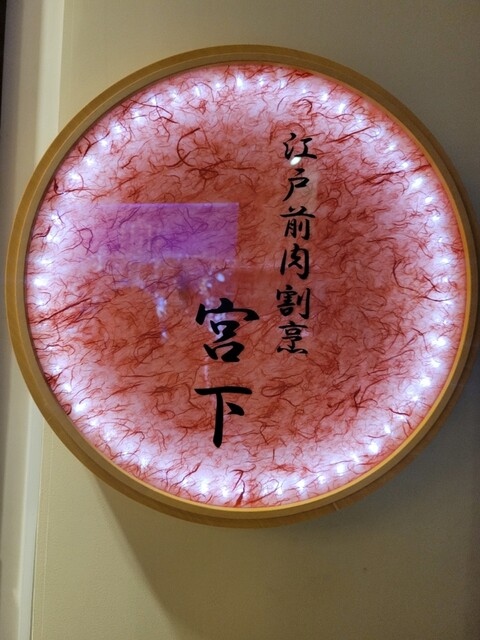 江戸前肉割烹
宮下